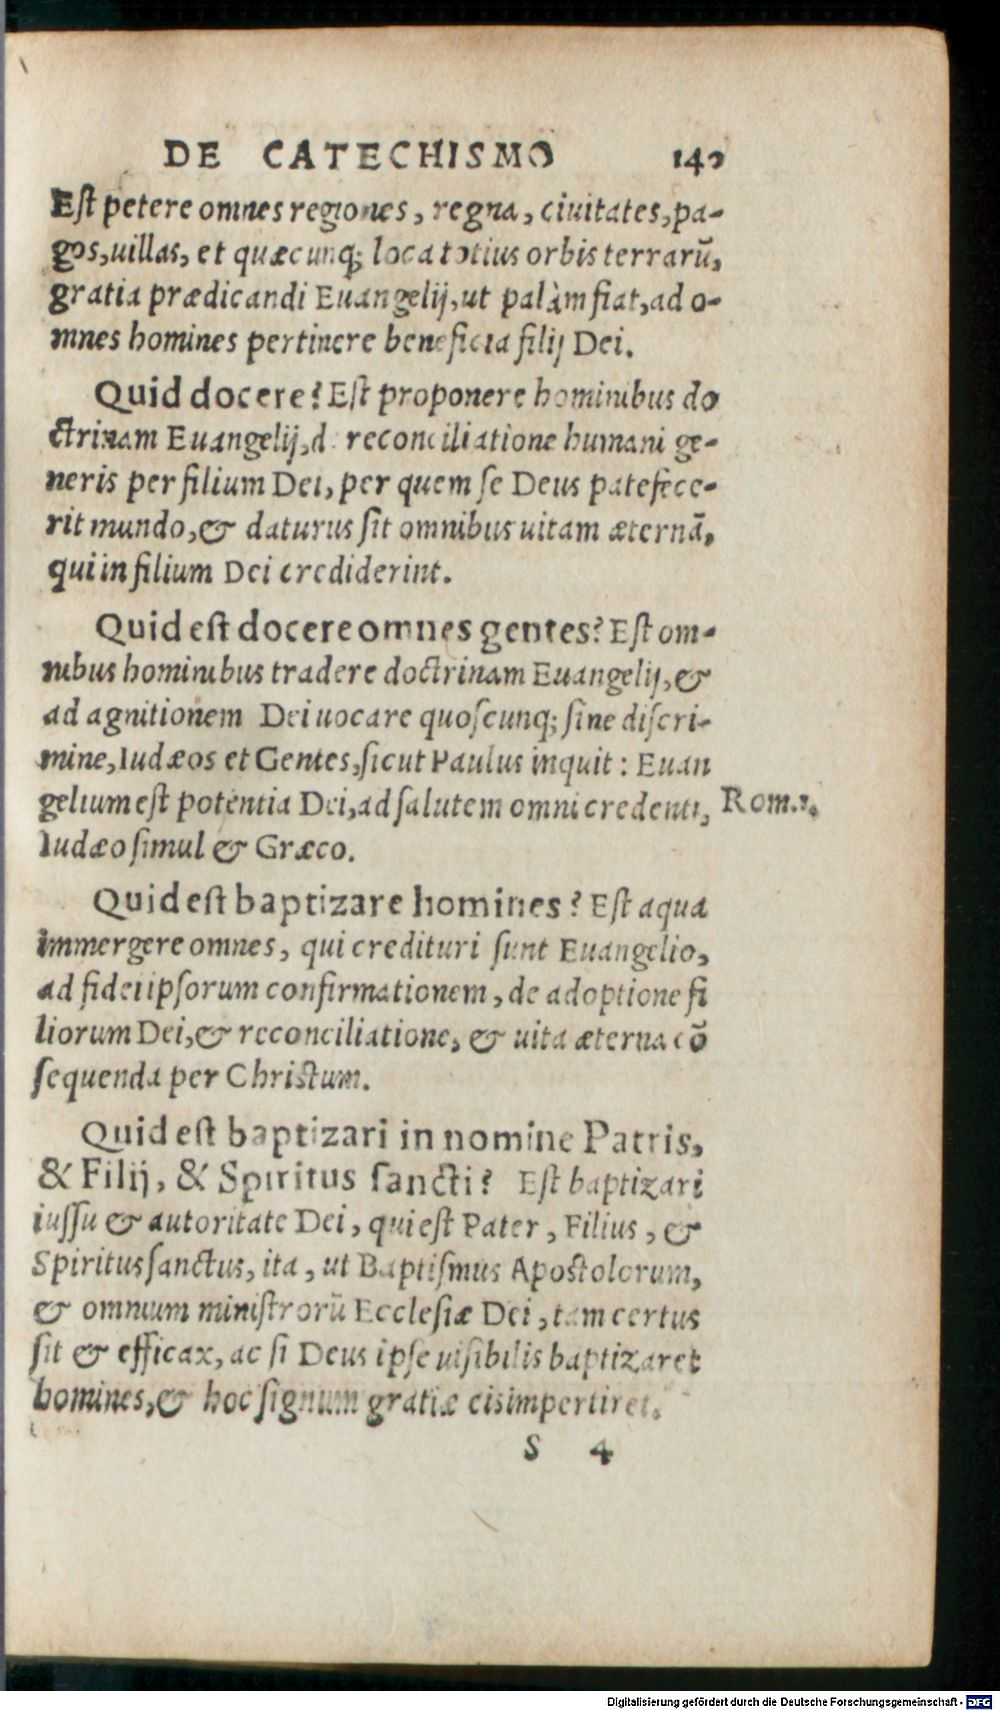 DE CATECHISMO 140
Eſt petere omnes regiones, regna, ciuitates, pa-
gos, uillas, et quæcunq; loca totius orbis terrarũ,
gratia prædicandi Euangelij, ut palàm fiat, ad o-
mnes homines pertinere beneficia filij Dei.
Quid docere? Eſt proponere hominibus do
ctrinam Euangelij, d reconciliatione humani ge-
neris per filium Dei, per quem ſe Deus patefece-
rit mundo, & daturus ſit omnibus uitam æternã,
qui in filium Dei crediderint.
Quid eſt docere omnes gentes? Eſt om-
nibus hominibus tradere doctrinam Euangelij, &
ad agnitionem Dei uocare quoſcunq; ſine diſcri-
mine, Iudæos et Gentes, ſicut Paulus inquit: Euan
gelium eſt potentia Dei, ad ſalutem omni credenti, Rom.1.
Iudæo ſimul & Græco.
Quid eſt baptizare homines? Eſt aqua
immergere omnes, qui credituri ſunt Euangelio,
ad fidei ipſorum confirmationem, de adoptione fi
liorum Dei, & reconciliatione, & uita æterna cõ
ſequenda per Chriſtum.
Quid eſt baptizari in nomine Patris,
& Filij, & Spiritus ſancti? Eſt baptizari
iuſſu & autoritate Dei, qui eſt Pater, Filius, &
Spiritus ſanctus, ita, ut Baptiſmus Apoſtolorum,
& omnium miniſtrorũ Eccleſiæ Dei, tam certus
ſit & efficax, ac ſi Deus ipſe uiſibilis baptizaret
homines, & hoc ſignum gratiæ eis impertiret.
S 4
Digitalisierung gefördert durch die Deutsche Forschungsgemeinschaft - DFG